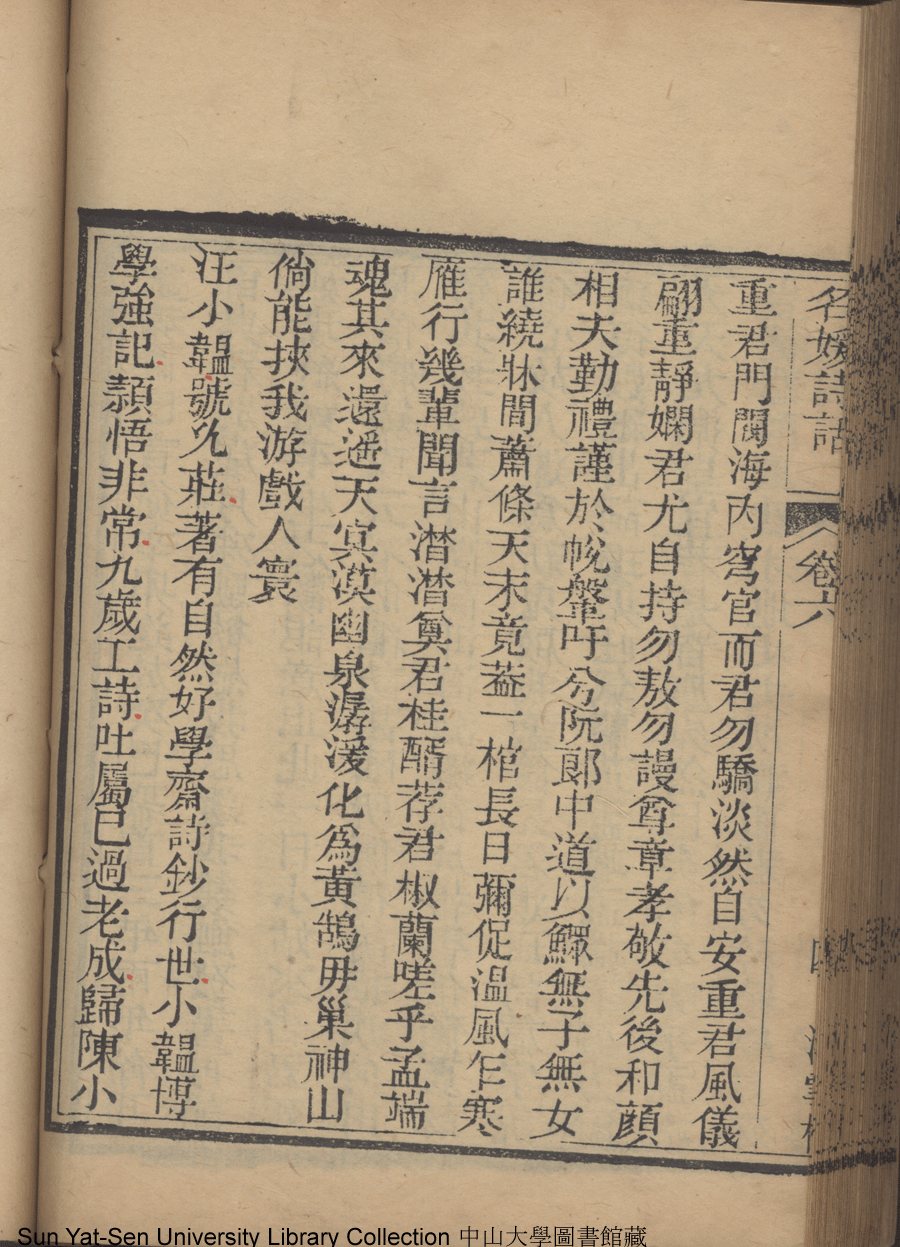 名媛詩話
卷六
重君門閥海内穹官而君勿驕淡然自安重君風儀
翩重靜嫻君尤自持勿敖勿謾尊章孝敬先後和顏
相夫勤禮謹於帨鞶吁兮阮郎中道以鰥無子無女
誰繞牀間蕭條天末竟葢一棺長日彌促温風乍寒
雁行幾輩聞言潸潸奠君桂酳荐君椒蘭嗟乎孟端
魂其來還遥遥天冥漠幽泉潺湲化爲黃鵠毋巢神山
倘能挾我游戲人寰
汪小韞號允莊著有自然好學齋詩鈔行世小韞博
學強記頴悟非常九歲工詩吐屬已過老成歸陳小
Sun Yat-Sen University Library Collection 中山大學圖書館藏